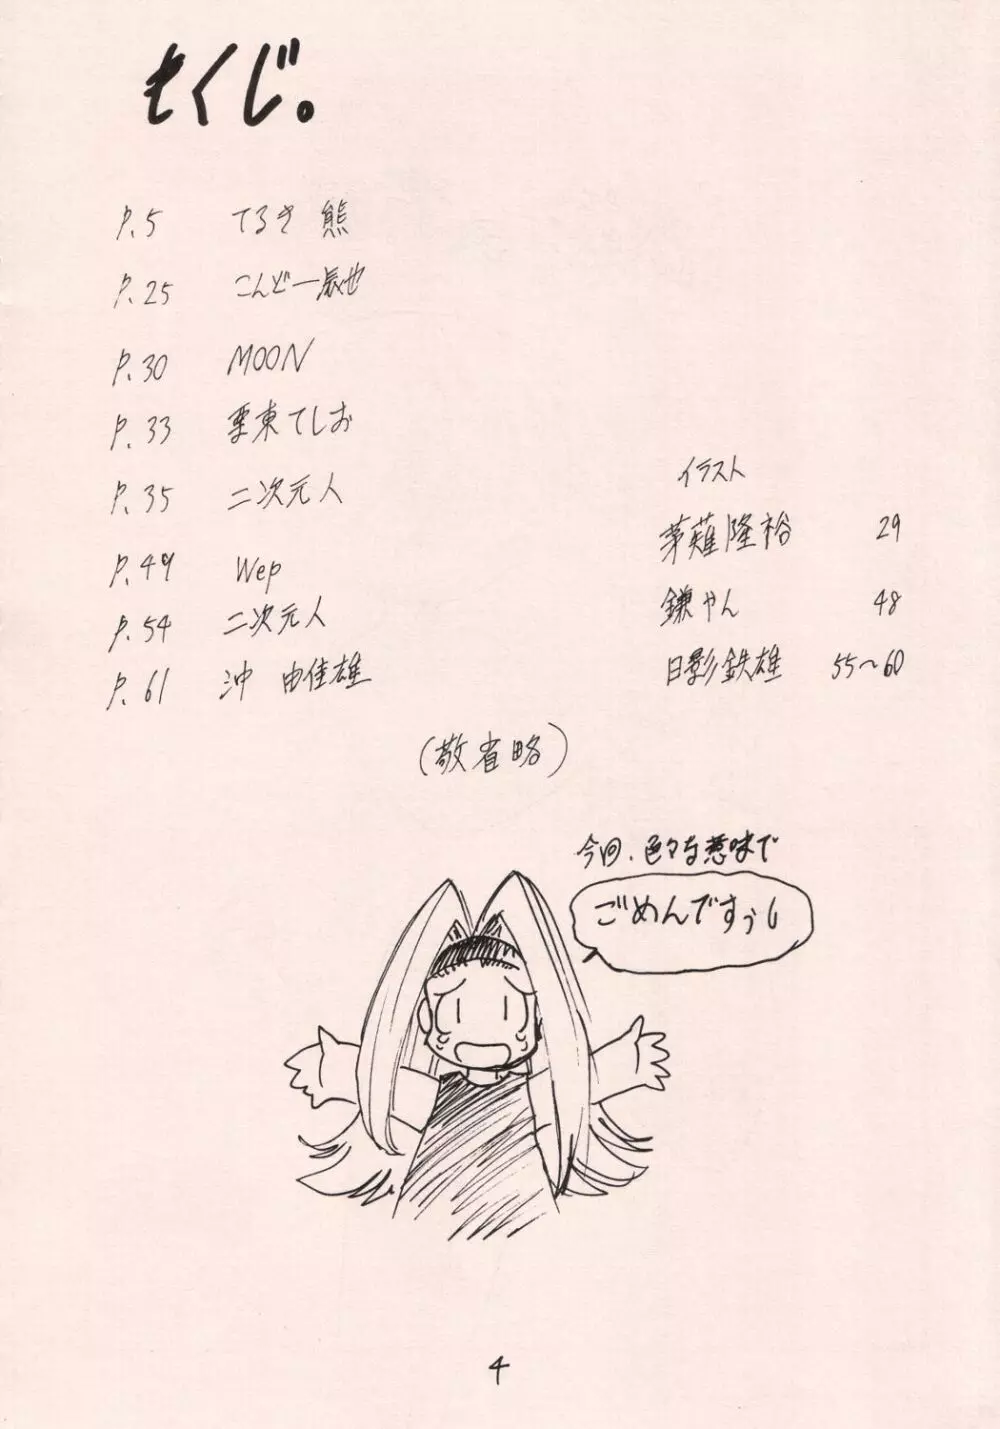 もくじ。
P.5 てるき熊
P.25 こんどー辰也
P.30 MOON
P.33 栗東てしお
P.35 二次元人
P.49 Wep
P.54 二次元人
P.61 沖 由佳雄
イラスト
茅薙隆裕 29
鎌やん 48
日影鉄雄 55〜60
(敬省略)
今回、色々な意味で
ごめんですぅし
4